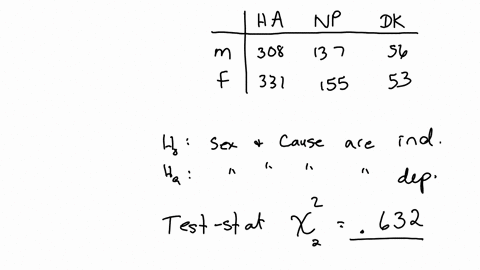 HA NP DK
m 308 137 56
F 331 155 53
H₀: Sex & Cause are ind.
Hₐ: " " " " dep.
Test-stat χ²₂ = .632